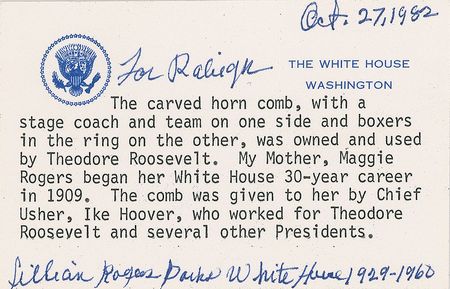 Oct. 27, 1982
For Raleigh
THE WHITE HOUSE
WASHINGTON
The carved horn comb, with a
stage coach and team on one side and boxers
in the ring on the other, was owned and used
by Theodore Roosevelt.  My Mother, Maggie
Rogers began her White House 30-year career
in 1909.  The comb was given to her by Chief
Usher, Ike Hoover, who worked for Theodore
Roosevelt and several other Presidents.
Lillian Rogers Parks White House, 1929-1960